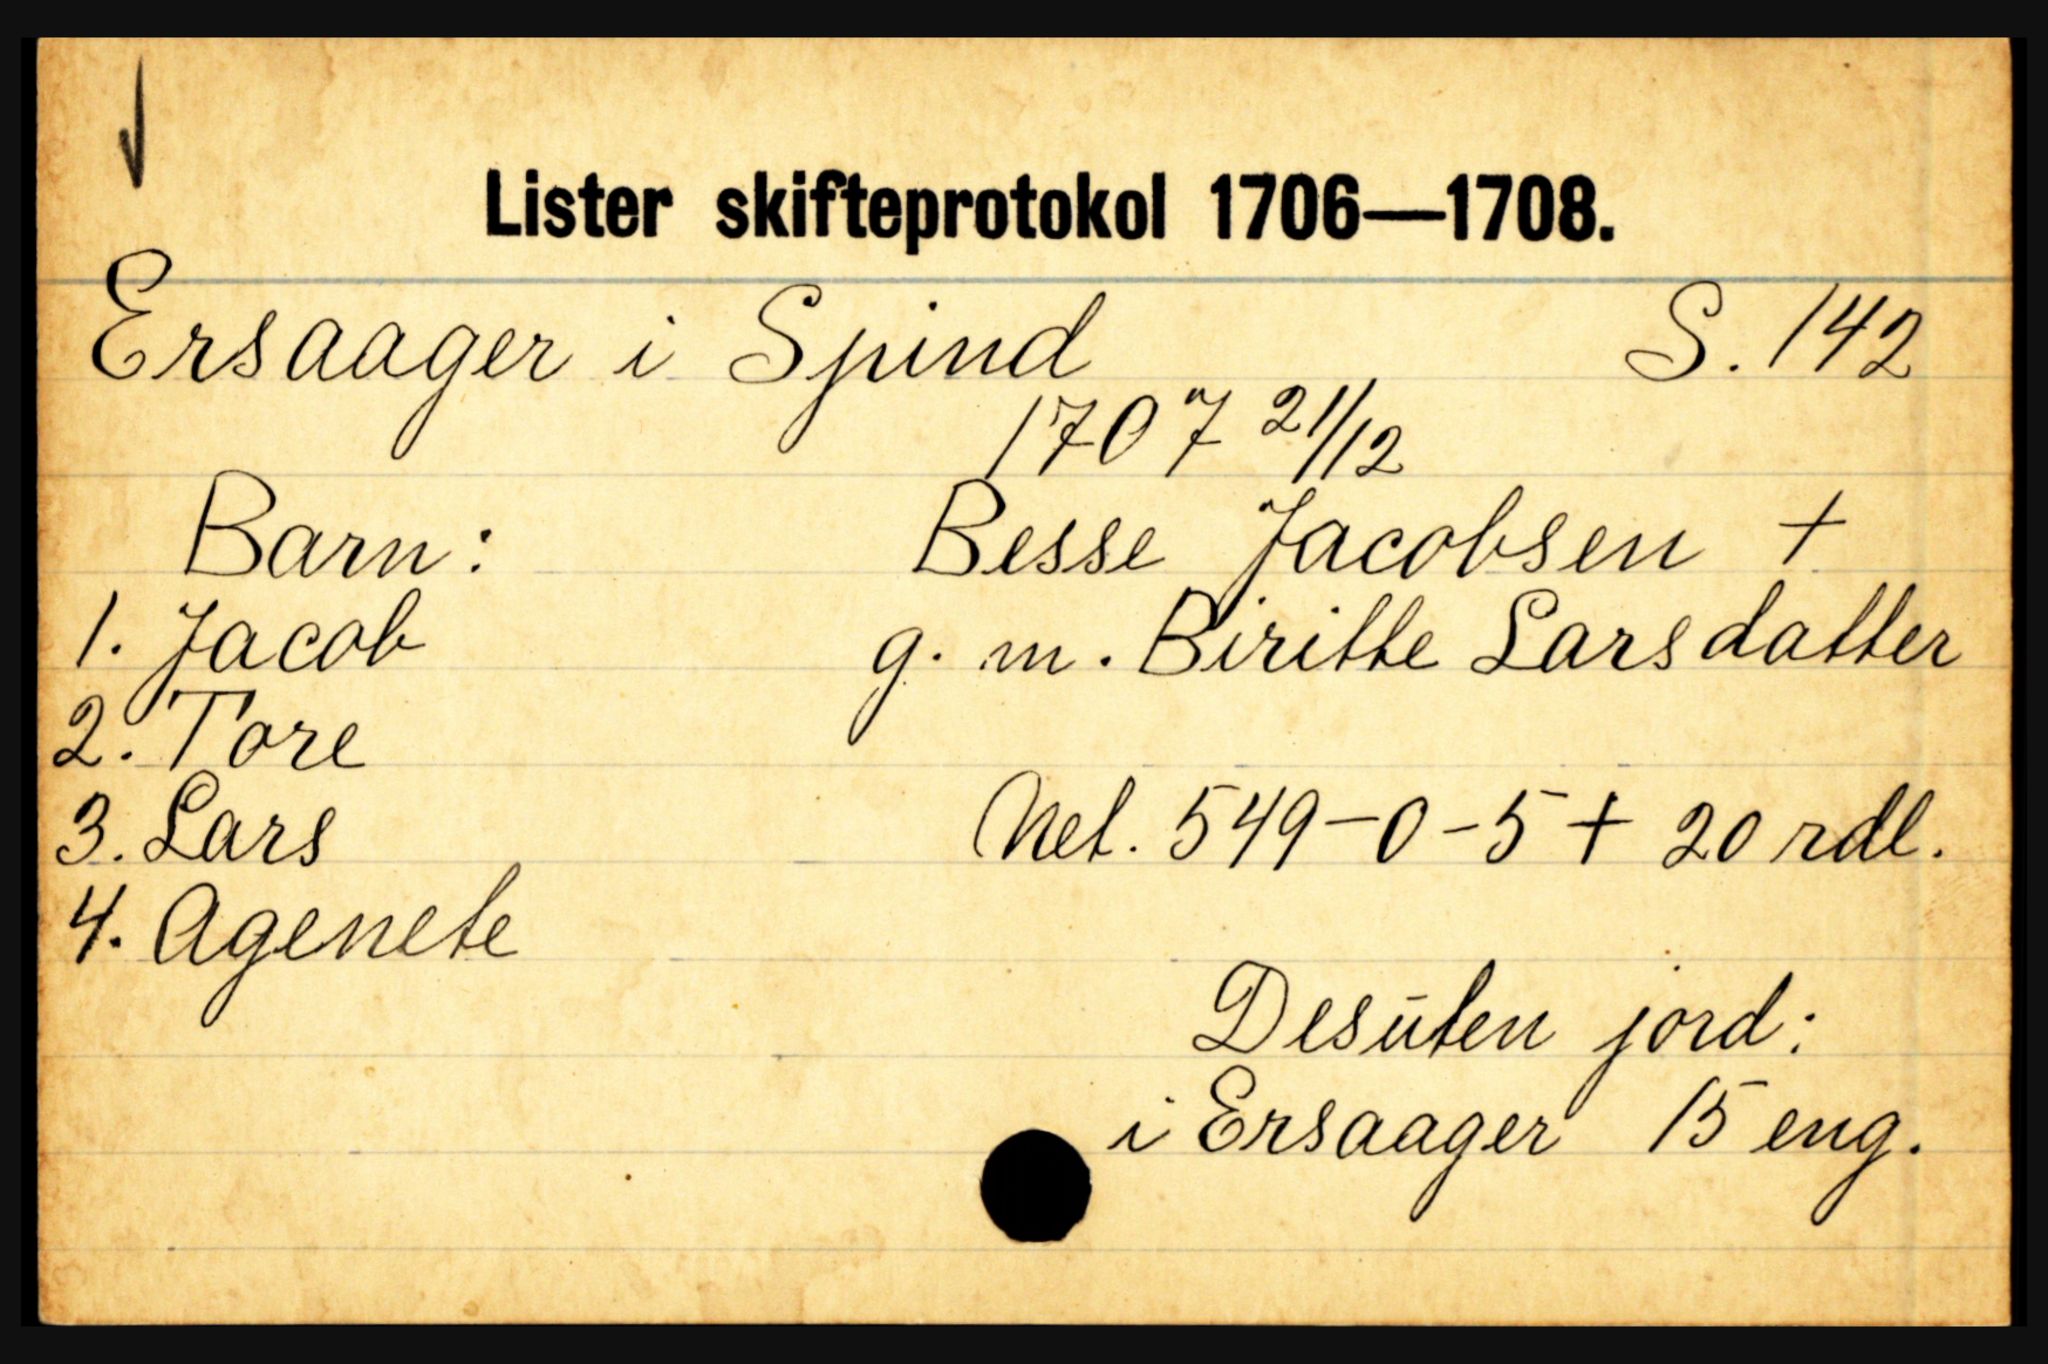 Lister skifteprotokol 1706—1708.
Ersaager i Spind S. 142
1707 21/12
Barn: Besse Jacobsen +
1. Jacob g. m. Biritte Larsdatter
2. Tore
3. Lars Net. 549-0-5 + 20 rdl.
4. Agenete
Desūten jord:
i Ersaager 15 eng.